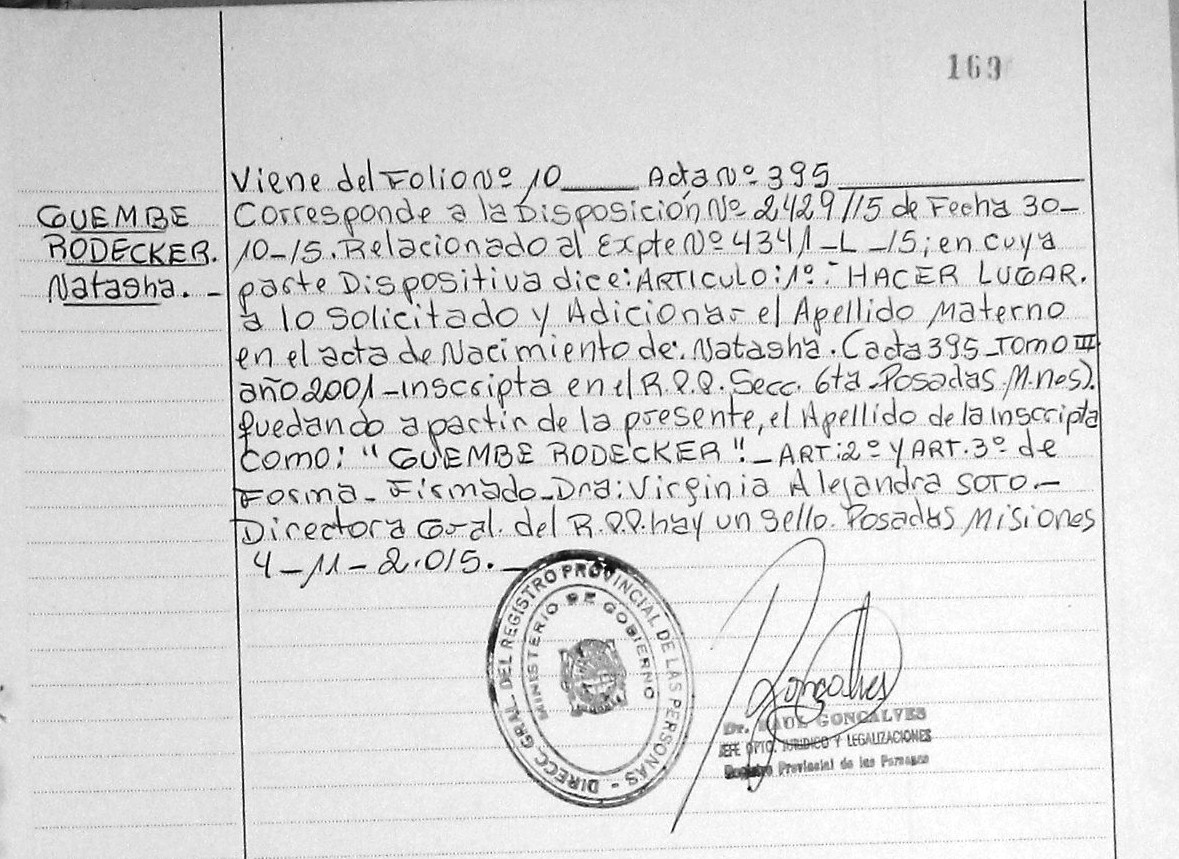 169
Viene del Folio Nº 10 ____ Acta Nº 395 ____
GUEMBE
RODECKER.
Natasha. -
Corresponde a la Disposición Nº 2429/15 de Fecha 30-
10-15. Relacionado al Expte Nº 4341-L-15; en cuya
parte Dispositiva dice: ARTICULO: 1º: HACER LUGAR.
a lo Solicitado y Adicionar el Apellido Materno
en el acta de Nacimiento de: Natasha. (acta 395_Tomo III
año 2001-inscripta en el R.P.P. Secc. 6ta-Posadas-M.nes).
Quedando a partir de la presente, el Apellido de la inscripta
como: "GUEMBE RODECKER". _ ART: 2º Y ART. 3º de
Forma_ Firmado_Dra: Virginia Alejandra SOTO.-
Directora Gral. del R.P.P. hay un sello. Posadas Misiones
4-11-2.015.-
DIRECC. GRAL. DEL REGISTRO PROVINCIAL DE LAS PERSONAS -
MINISTERIO DE GOBIERNO
Gonçalves
Dr. RAUL GONCALVES
JEFE DPTO. JURIDICO Y LEGALIZACIONES
Registro Provincial de las Personas